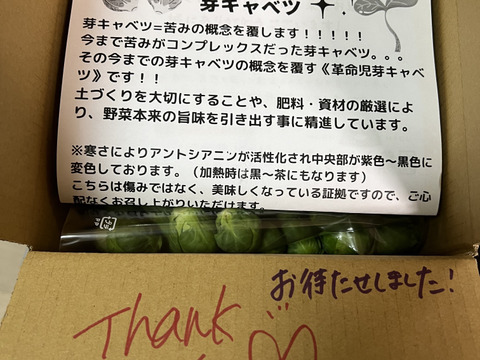 芽キャベツ
芽キャベツ=苦みの概念を覆します!!!!!
今まで苦みがコンプレックスだった芽キャベツ。。。
その今までの芽キャベツの概念を覆す《革命児芽キャベ
ツ》です!!
土づくりを大切にすることや、肥料・資材の厳選によ
り、野菜本来の旨味を引き出す事に精進しています。
※寒さによりアントシアニンが活性化され中央部が紫色~黒色に
変色しております。(加熱時は黒~茶にもなります)
こちらは傷みではなく、美味しくなっている証拠ですので、ご心
配なくお召し上がりいただけます。
お待たせしました!
Thank